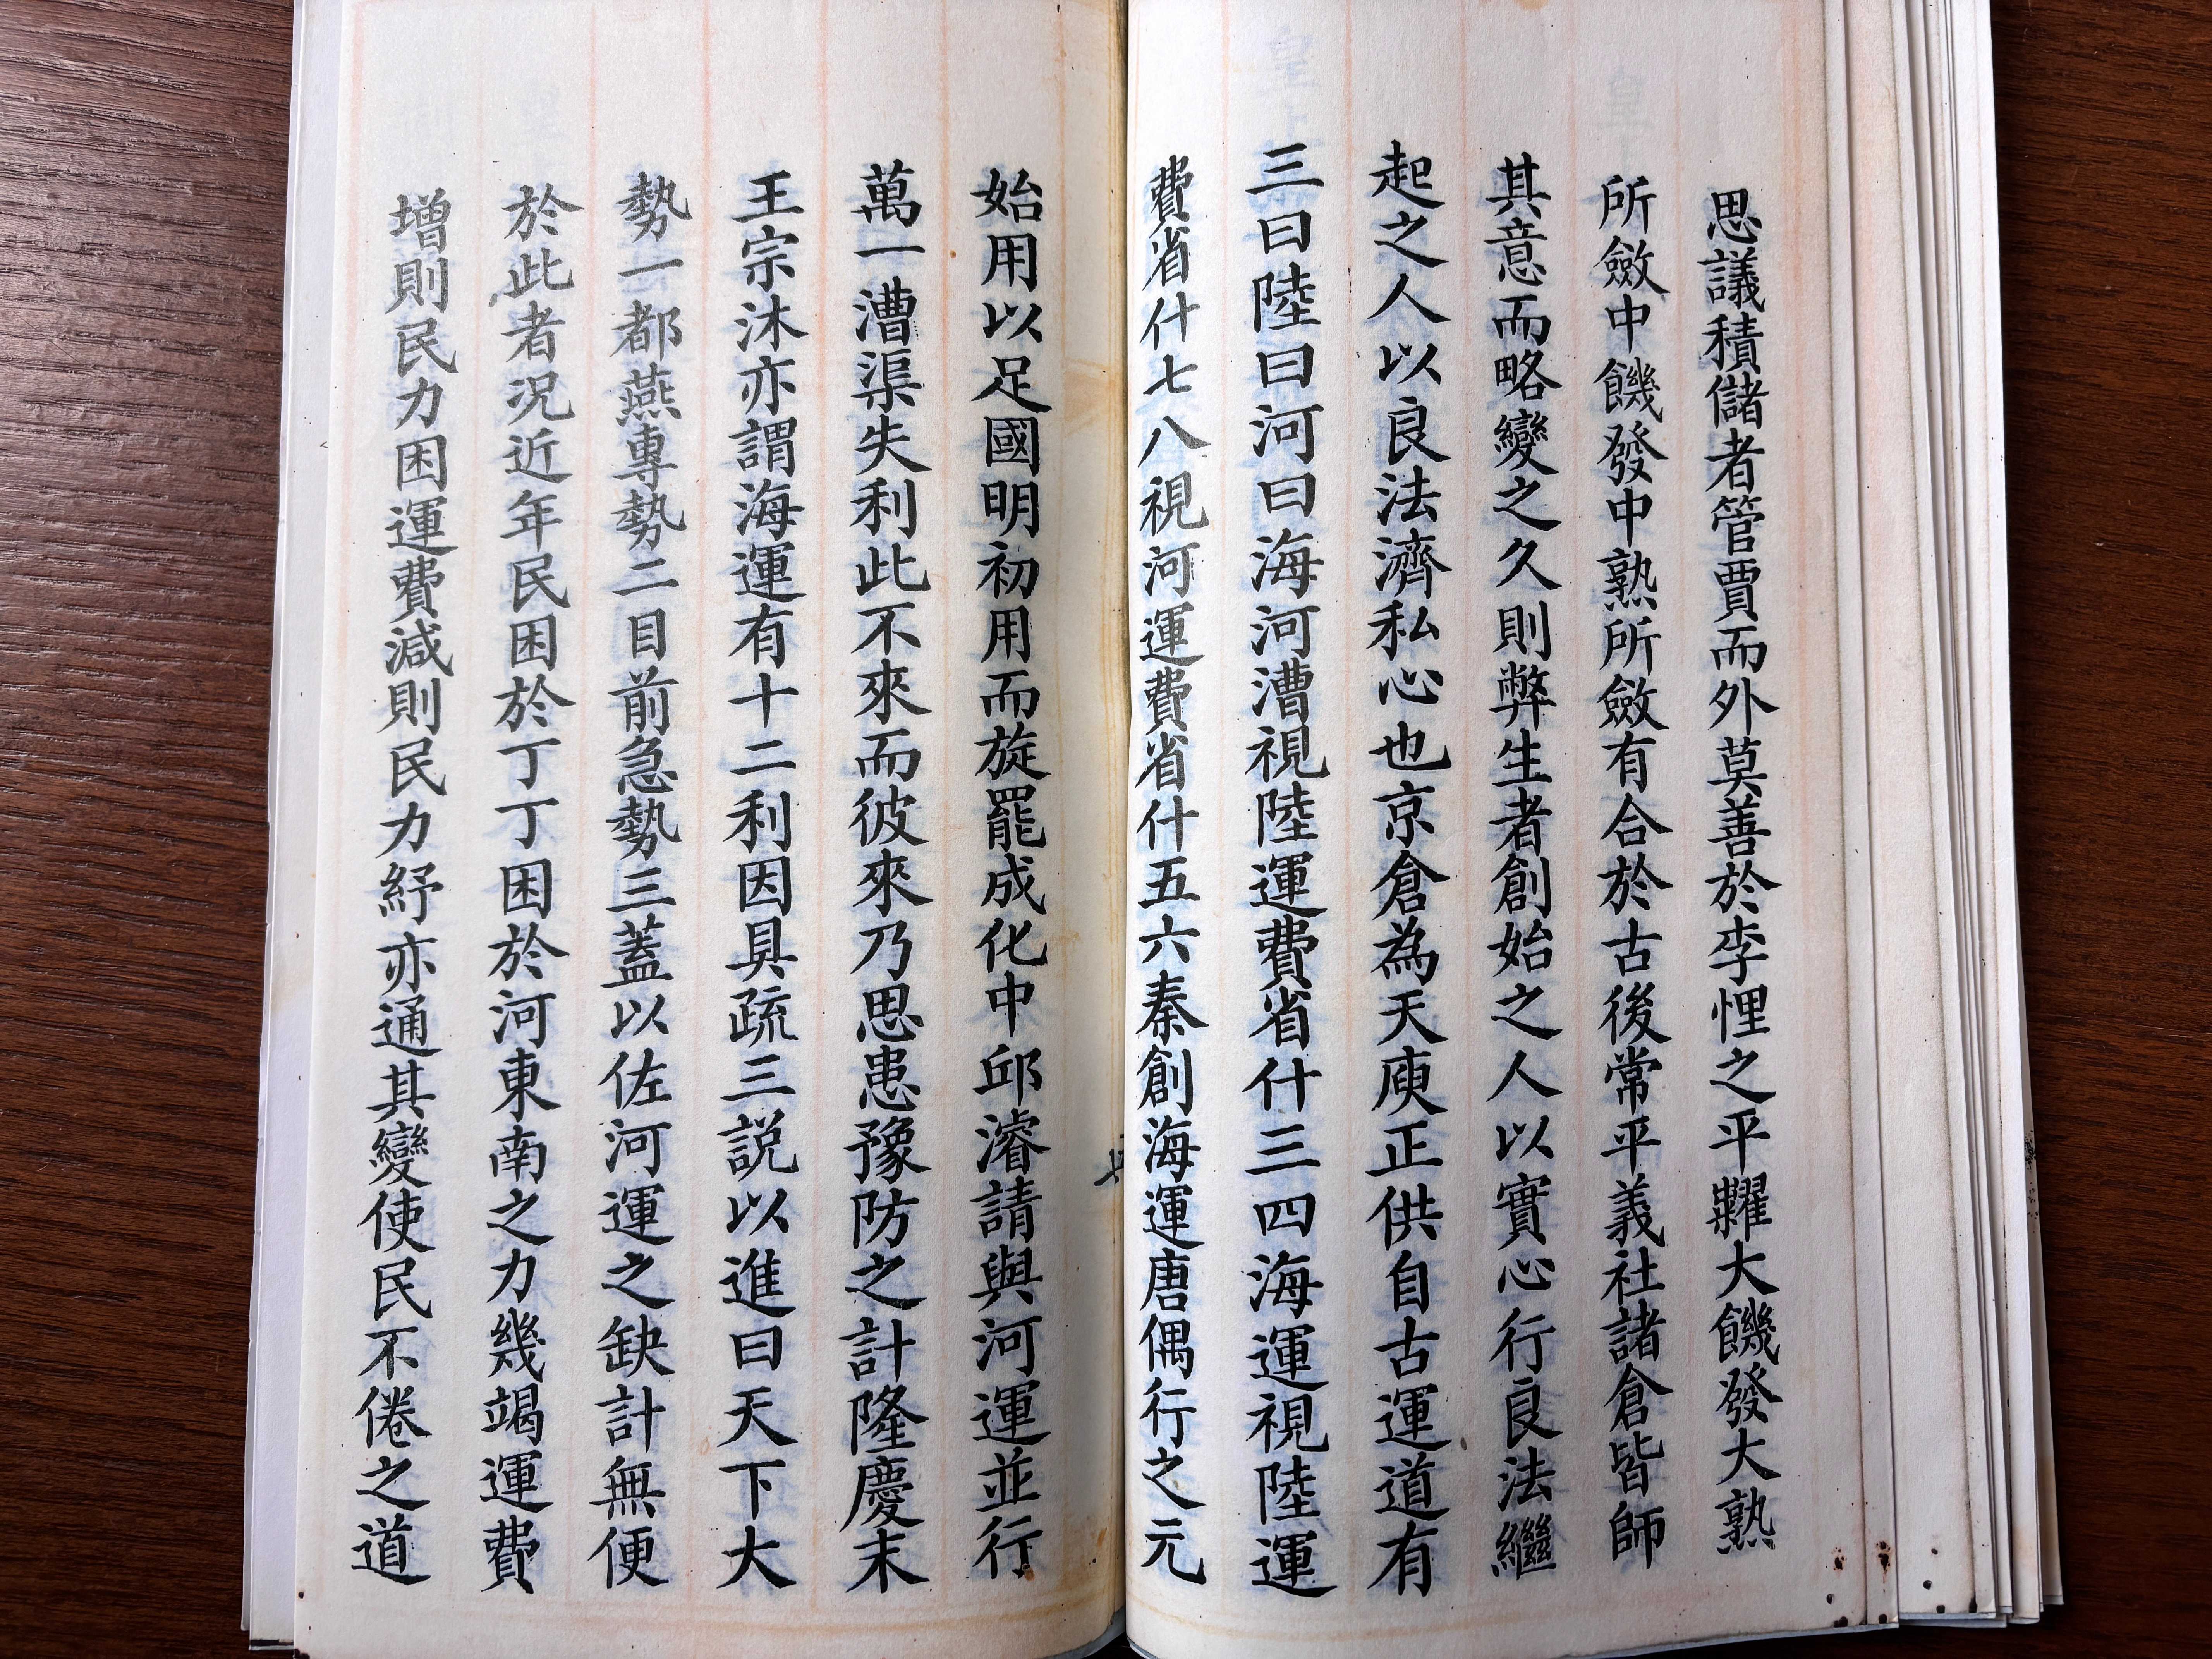 思議積儲者管賈而外莫善於李悝之平糶大饑發大熟
所斂中饑發中熟所斂有合於古後常平義社諸倉皆師
其意而略變之久則弊生者創始之人以實心行良法繼
起之人以良法濟私心也京倉為天庾正供自古運道有
三曰陸曰河曰海河漕視陸運費省什三四海運視陸運
費省什七八視河運費省什五六秦創海運唐偶行之元
始用以足國明初用而旋罷成化中邱濬請與河運並行
萬一漕渠失利此不來而彼來乃思患豫防之計隆慶末
王宗沐亦謂海運有十二利因具疏三說以進曰天下大
勢一都燕專勢二目前急勢三蓋以佐河運之缺計無便
於此者況近年民困於丁丁困於河東南之力幾竭運費
增則民力困運費減則民力紓亦通其變使民不倦之道